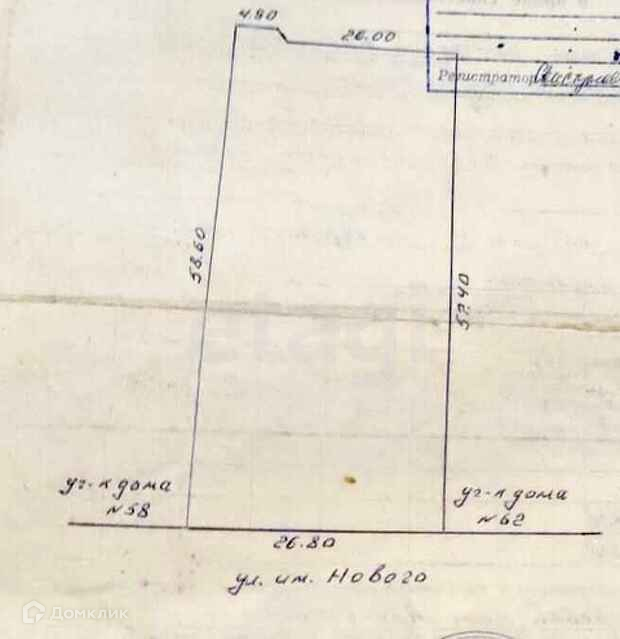 4.80
26.00
Регистратор
58.60
57.40
etagi
уг-к дома
№58
уг-к дома
№62
26.80
ул. им. Нового
Домклик